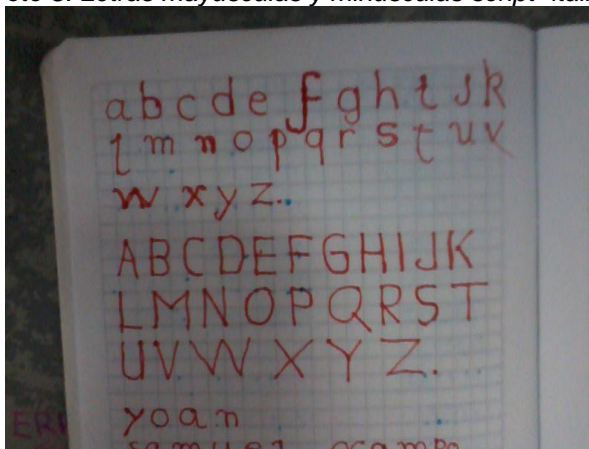 Letras mayúsculas y minúsculas script
a b c d e f g h i J k
l m n o p q r s t u v
w x y z..
A B C D E F G H I J K
L M N O P Q R S T
U V W X Y Z.
yoan
samuel ocampo